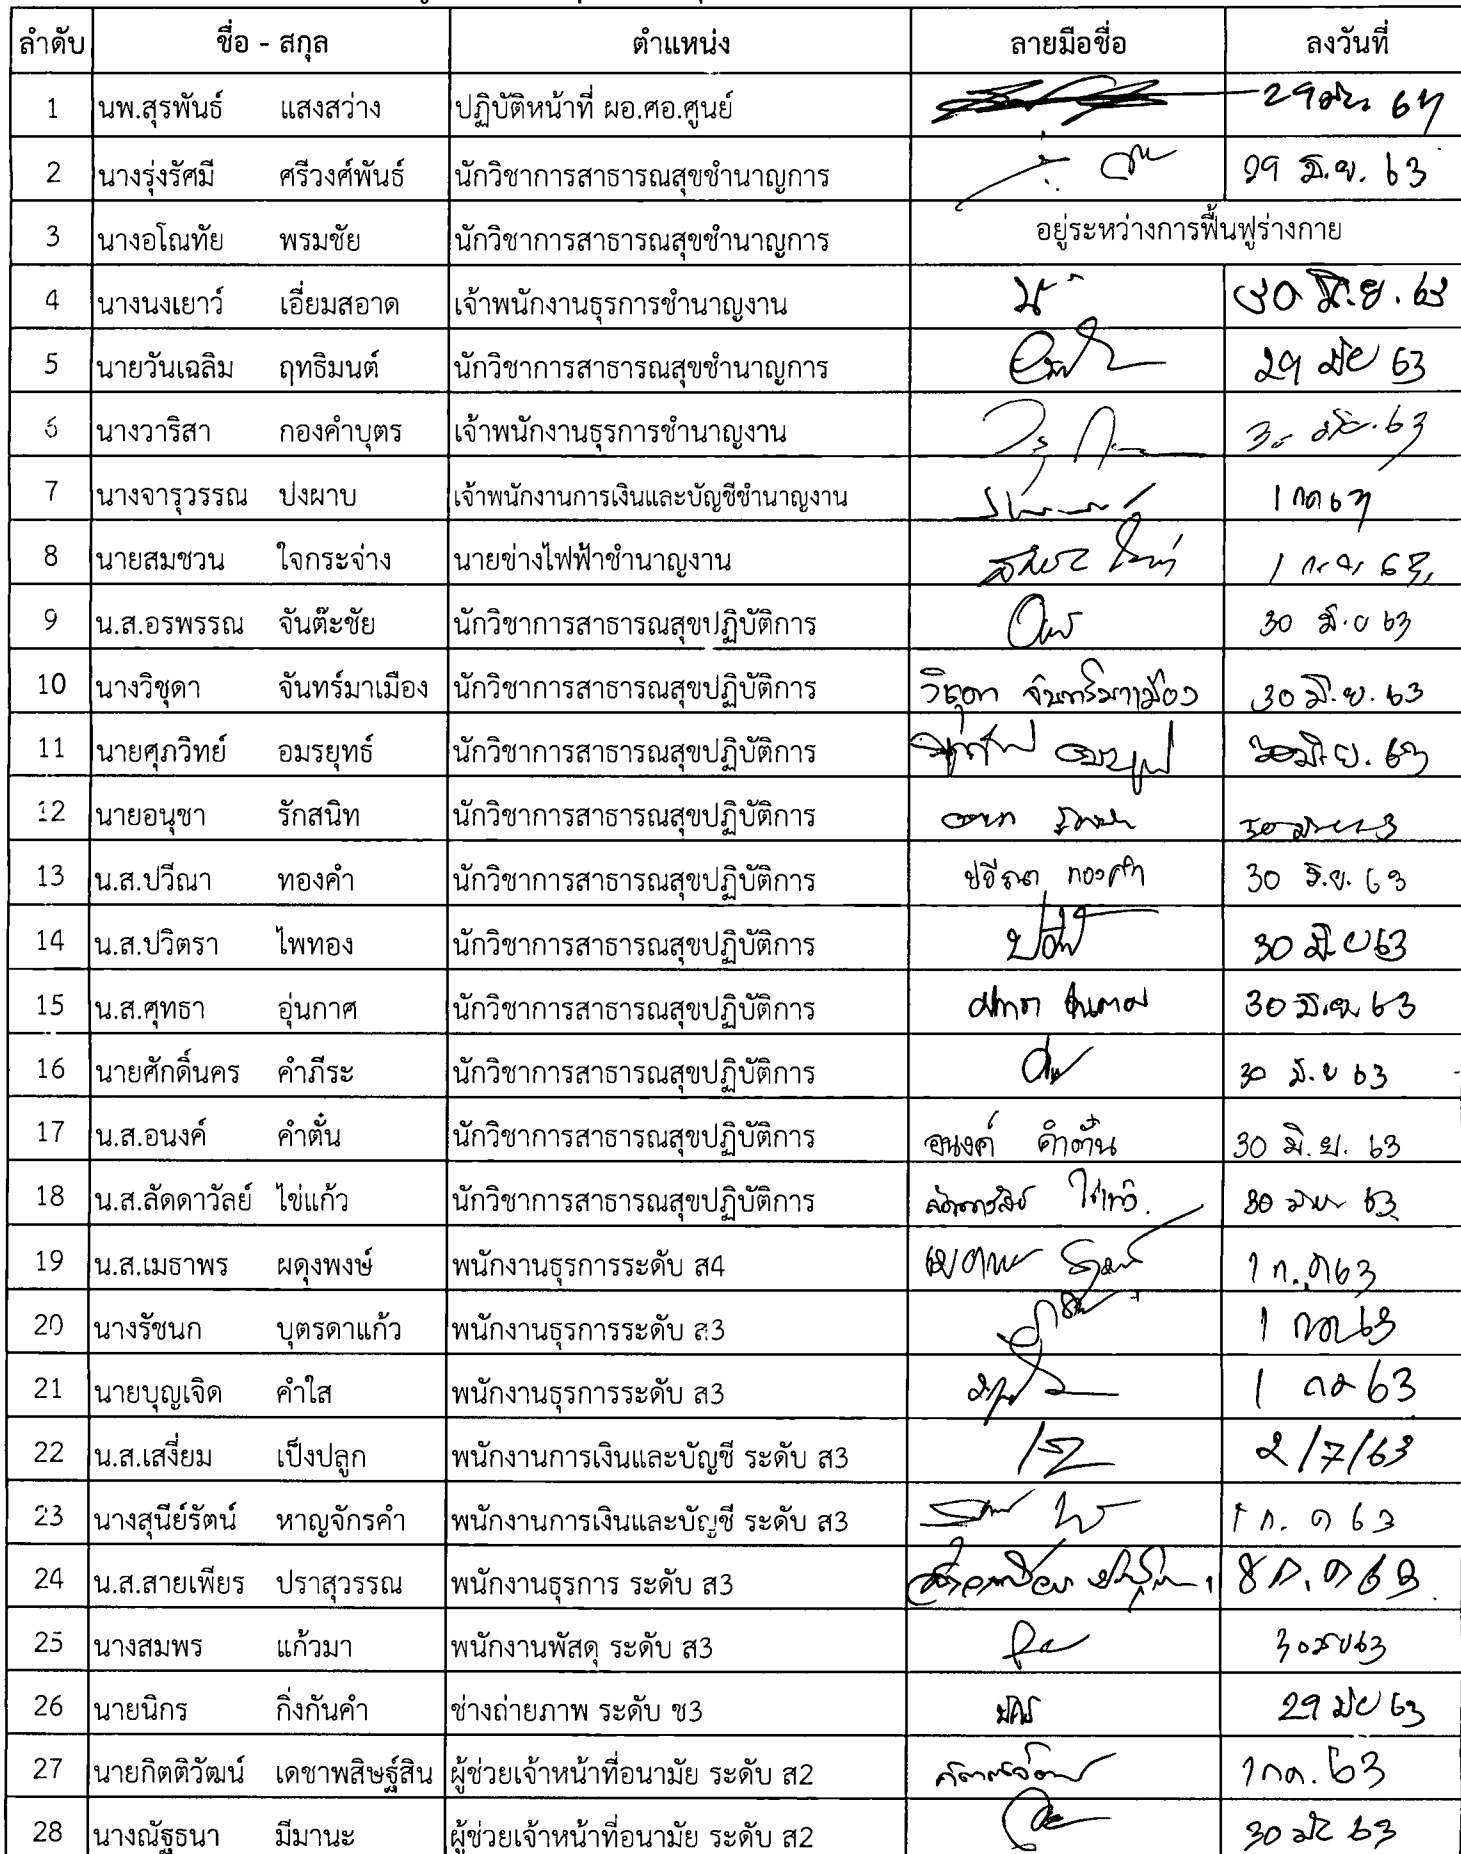 ลำดับ ชื่อ - สกุล ตำแหน่ง ลายมือชื่อ ลงวันที่
1 นพ.สุรพันธ์ แสงสว่าง ปฏิบัติหน้าที่ ผอ.ศอ.ศูนย์ 29
2 นางรุ่งรัศมี ศรีวงศ์พันธ์ นักวิชาการสาธารณสุขชำนาญการ 29 มิ.ย. 63
3 นางอโณทัย พรมชัย นักวิชาการสาธารณสุขชำนาญการ อยู่ระหว่างการฟื้นฟูร่างกาย
4 นางนงเยาว์ เอี่ยมสอาด เจ้าพนักงานธุรการชำนาญงาน 30 มิ.ย. 63
5 นายวันเฉลิม ฤทธิมนต์ นักวิชาการสาธารณสุขชำนาญการ 29 มิย 63
6 นางวาริสา กองคำบุตร เจ้าพนักงานธุรการชำนาญงาน 63
7 นางจารุวรรณ ปงผาบ เจ้าพนักงานการเงินและบัญชีชำนาญงาน 1 กค 63
8 นายสมชวน ใจกระจ่าง นายช่างไฟฟ้าชำนาญงาน 1 ก.ค. 63
9 น.ส.อรพรรณ จันต๊ะชัย นักวิชาการสาธารณสุขปฏิบัติการ 30 มิ.ย 63
10 นางวิชุดา จันทร์มาเมือง นักวิชาการสาธารณสุขปฏิบัติการ วิชุดา จันทร์มาเมือง 30 มิ.ย. 63
11 นายศุภวิทย์ อมรยุทธ์ นักวิชาการสาธารณสุขปฏิบัติการ 30 มิ.ย. 63
12 นายอนุชา รักสนิท นักวิชาการสาธารณสุขปฏิบัติการ
13 น.ส.ปวีณา ทองคำ นักวิชาการสาธารณสุขปฏิบัติการ ปวีณา ทองคำ 30 มิ.ย. 63
14 น.ส.ปวิตรา ไพทอง นักวิชาการสาธารณสุขปฏิบัติการ 30 มิ.ย 63
15 น.ส.ศุทธา อุ่นกาศ นักวิชาการสาธารณสุขปฏิบัติการ 30 มิ.ย. 63
16 นายศักดิ์นคร คำภีระ นักวิชาการสาธารณสุขปฏิบัติการ 30 มิ.ย 63
17 น.ส.อนงค์ คำตั๋น นักวิชาการสาธารณสุขปฏิบัติการ อนงค์ คำตั๋น 30 มิ.ย. 63
18 น.ส.ลัดดาวัลย์ ไข่แก้ว นักวิชาการสาธารณสุขปฏิบัติการ ลัดดาวัลย์ ไข่แก้ว 30 มิย 63
19 น.ส.เมธาพร ผดุงพงษ์ พนักงานธุรการระดับ ส4 1 ก.ค 63
20 นางรัชนก บุตรดาแก้ว พนักงานธุรการระดับ ส3 1 กค 63
21 นายบุญเจิด คำใส พนักงานธุรการระดับ ส3 1 กค 63
22 น.ส.เสงี่ยม เป็งปลูก พนักงานการเงินและบัญชี ระดับ ส3 2/7/63
23 นางสุนีย์รัตน์ หาญจักรคำ พนักงานการเงินและบัญชี ระดับ ส3 1 ก.ค 63
24 น.ส.สายเพียร ปราสุวรรณ พนักงานธุรการ ระดับ ส3 8 ก.ค 63
25 นางสมพร แก้วมา พนักงานพัสดุ ระดับ ส3 30 มิย 63
26 นายนิกร กิ่งกันคำ ช่างถ่ายภาพ ระดับ ช3 29 มิย 63
27 นายกิตติวัฒน์ เดชาพสิษฐ์สิน ผู้ช่วยเจ้าหน้าที่อนามัย ระดับ ส2 1 กค. 63
28 นางณัฐธนา มีมานะ ผู้ช่วยเจ้าหน้าที่อนามัย ระดับ ส2 30 มิย 63